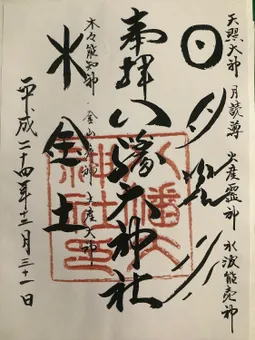 天照大神 月読尊 火産霊神 水波能売神
日月火水
奉拝 八幡大神社
八幡大神社印
木々能知神
木金土
平成二十四年十二月三十一日